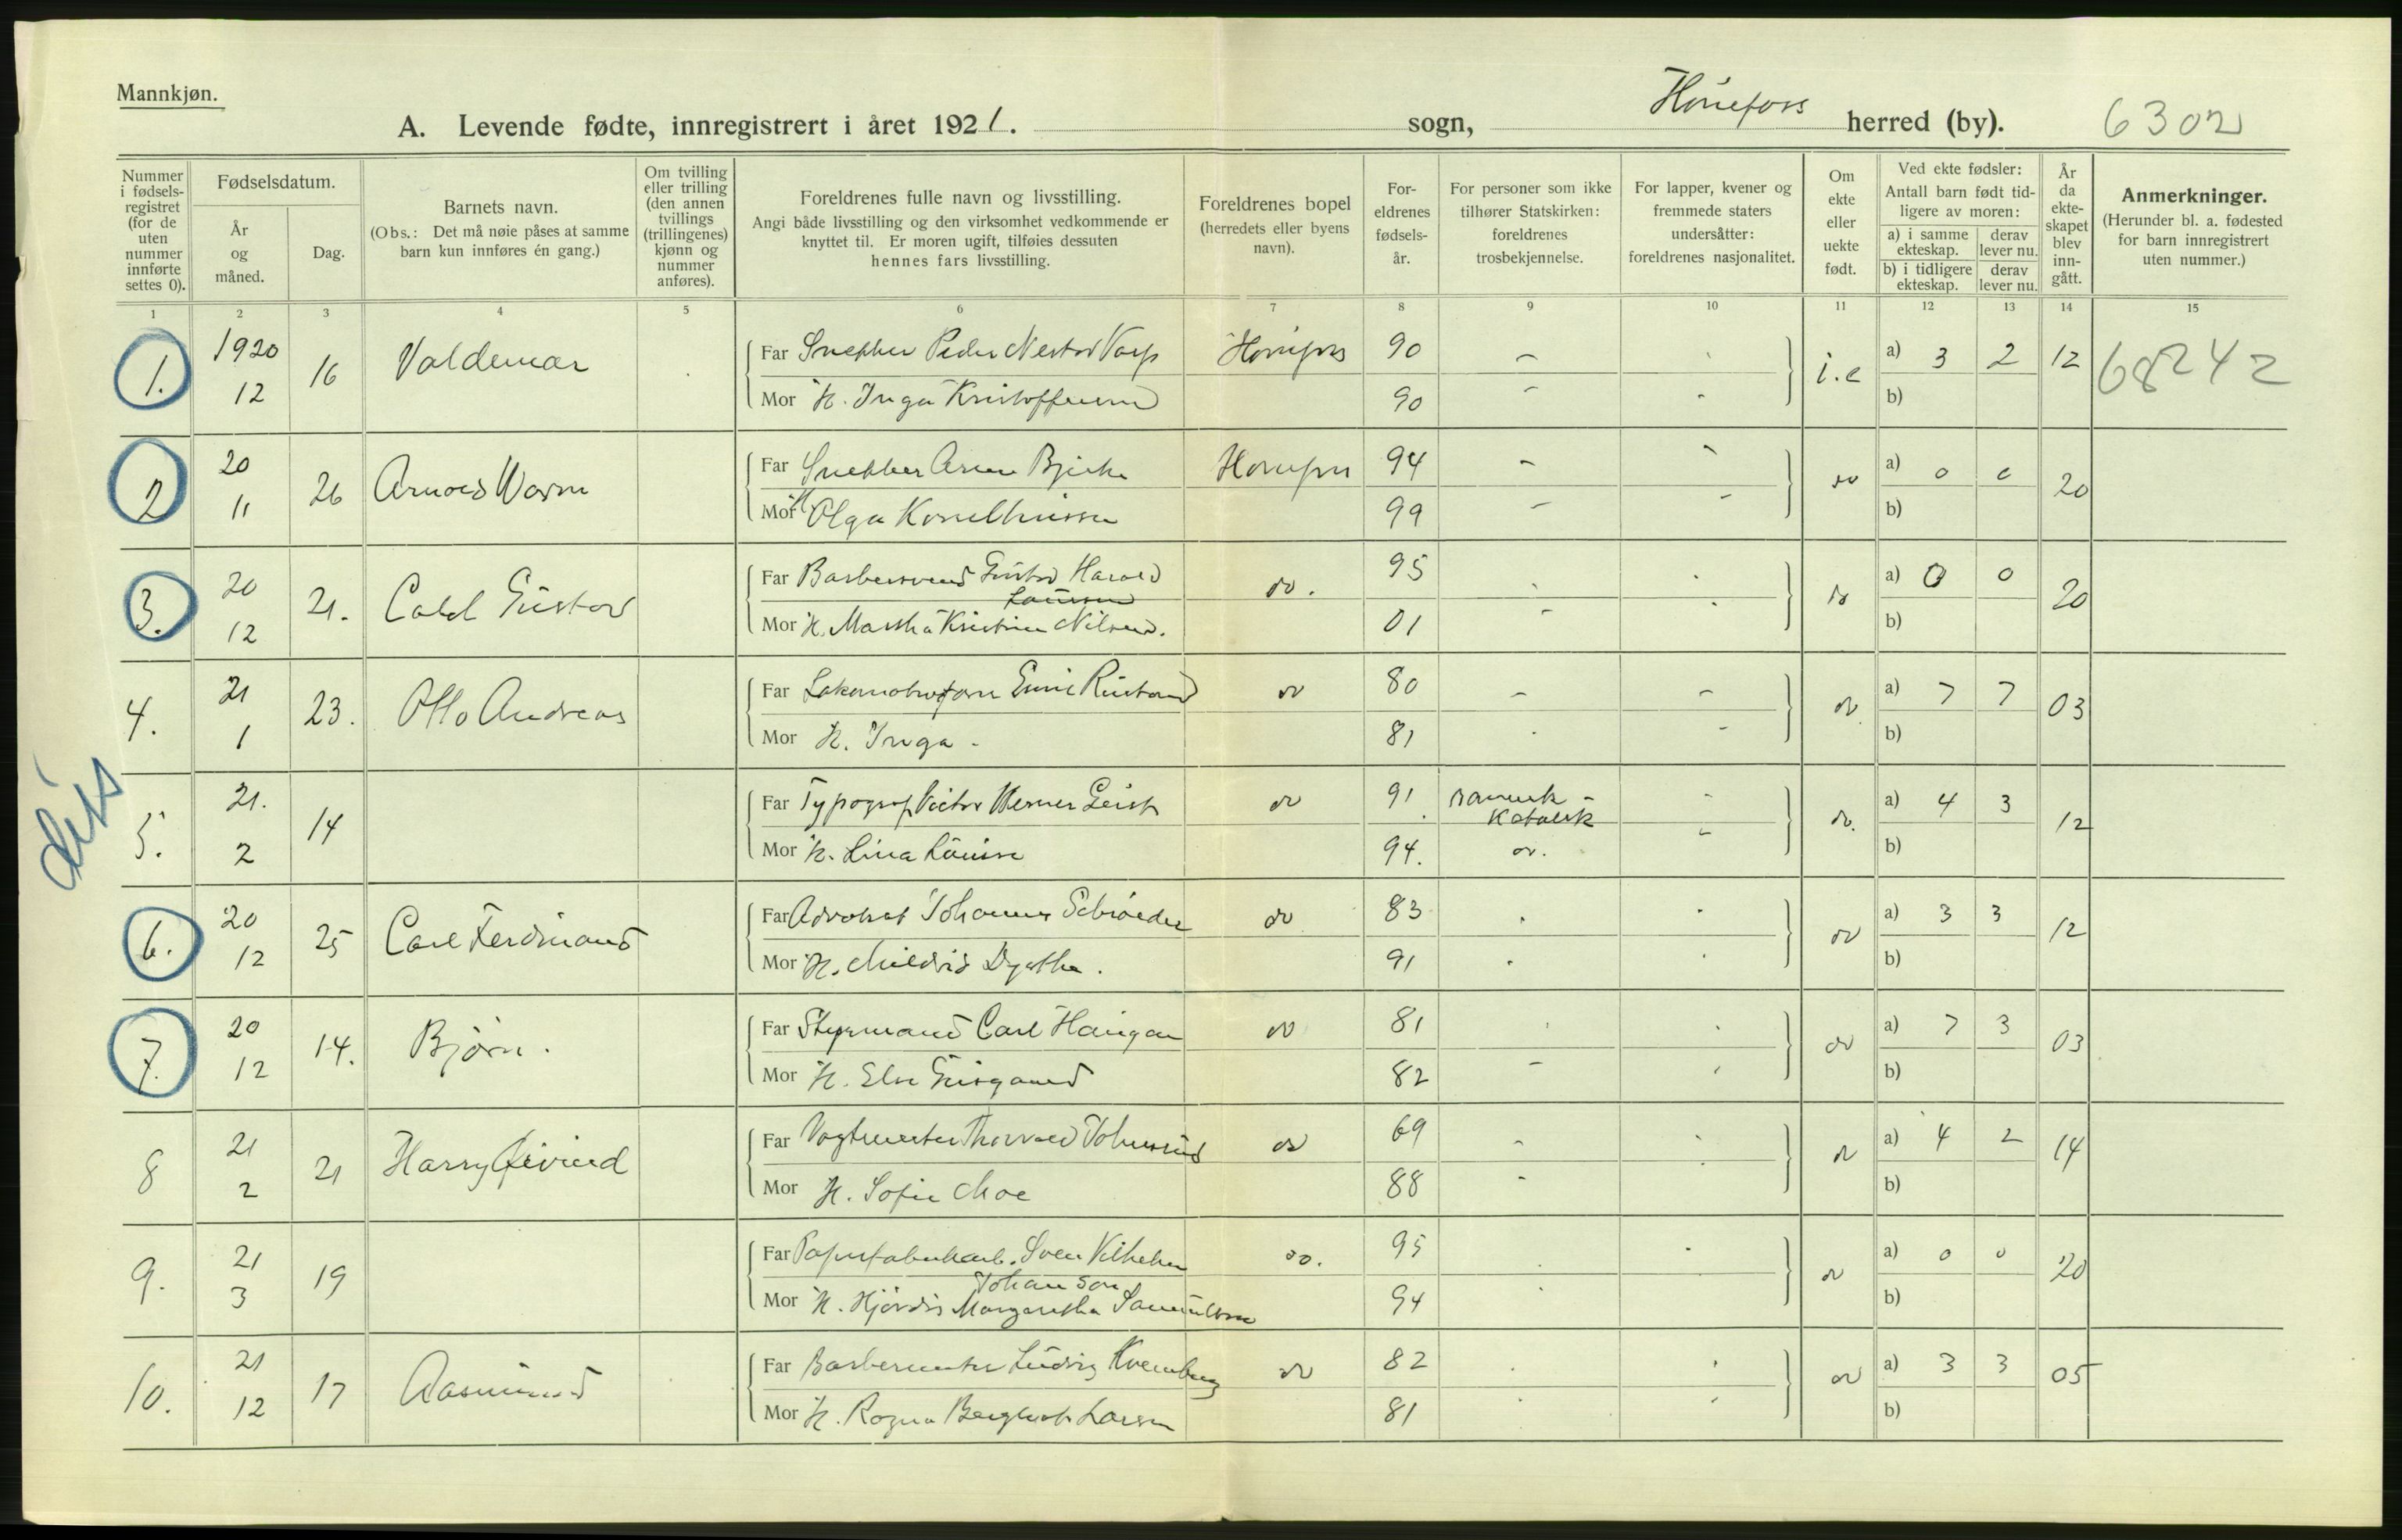 Mannkjøn.
A. Levende fødte, innregistrert i året 1921. sogn, Hönefoss herred (by). 6302
Nummer i fødsels-registret (for de uten nummer innførte settes 0).
Fødselsdatum.
År og måned.
Dag.
Barnets navn.
(Obs.: Det må nøie påses at samme barn kun innføres én gang.)
Om tvilling eller trilling (den annen tvillings (trillingenes) kjønn og nummer anføres).
Foreldrenes fulle navn og livsstilling.
Angi både livsstilling og den virksomhet vedkommende er knyttet til. Er moren ugift, tilføies dessuten hennes fars livsstilling.
Foreldrenes bopel (herredets eller byens navn).
For-eldrenes fødsels-år.
For personer som ikke tilhører Statskirken: foreldrenes trosbekjennelse.
For lapper, kvener og fremmede staters undersåtter: foreldrenes nasjonalitet.
Om ekte eller uekte født.
Ved ekte fødsler: Antall barn født tid-ligere av moren:
a) i samme ekteskap. derav lever nu.
b) i tidligere ekteskap. derav lever nu.
År da ekte-skapet blev inn-gått.
Anmerkninger.
(Herunder bl. a. fødested for barn innregistrert uten nummer.)
1 2 3 4 5 6 7 8 9 10 11 12 13 14 15
1. 1920 12 16 Valdemar
Far Snekker Peder Nestor Hönefoss 90 - i.e a) 3 2 12 68242
Mor H. Inga Kristoffersen 90 - b)
2 20 11 26 Arnold
Far Snekker Hönefoss 94 - do a) 0 0 20
Mor H. Olga 99 - b)
3. 20 12 21. Gustav
Far Barbersvend Gustav Harald do. 95 do a) 0 0 20
Laursen
Mor H. Martha Kristine Nilsen. 01 - b)
4. 21 1 23. Otto Andreas
Far do 80 - do a) 7 7 03
Mor H. Inga - 81 b)
5. 21. 2 14
Far Typograf Victor Werner Geist do 91 do. a) 4 3 12
Katolsk
Mor H. Lina Louise 94. do. b)
6. 20 12 25 Carl Ferdinand
Far Advokat Johannes Schrøeder do 83 do a) 3 3 12
Mor H. Dyrthe. 91 b)
7. 20 12 14. Björn.
Far Styrmand Carl Haugan do 81 do a) 7 3 03
Mor H. Else 82 - b)
8 21 2 21 Harry Øivind
Far Vagtmester Thorvald do 69 - do a) 4 2 14
Mor H. Sofie Moe 88 - b)
9. 21 3 19
Far Papirfabrikarb. Sven Vilhelm do. 95 do a) 0 0 20
Johanson
Mor H. Hjördis Margaretha Samuelsen 94 b)
10. 21 12 17 Aasmund
Far Barbermester Ludvig do 82 do a) 3 3 05
Mor H. Ragna Larsen 81 b)